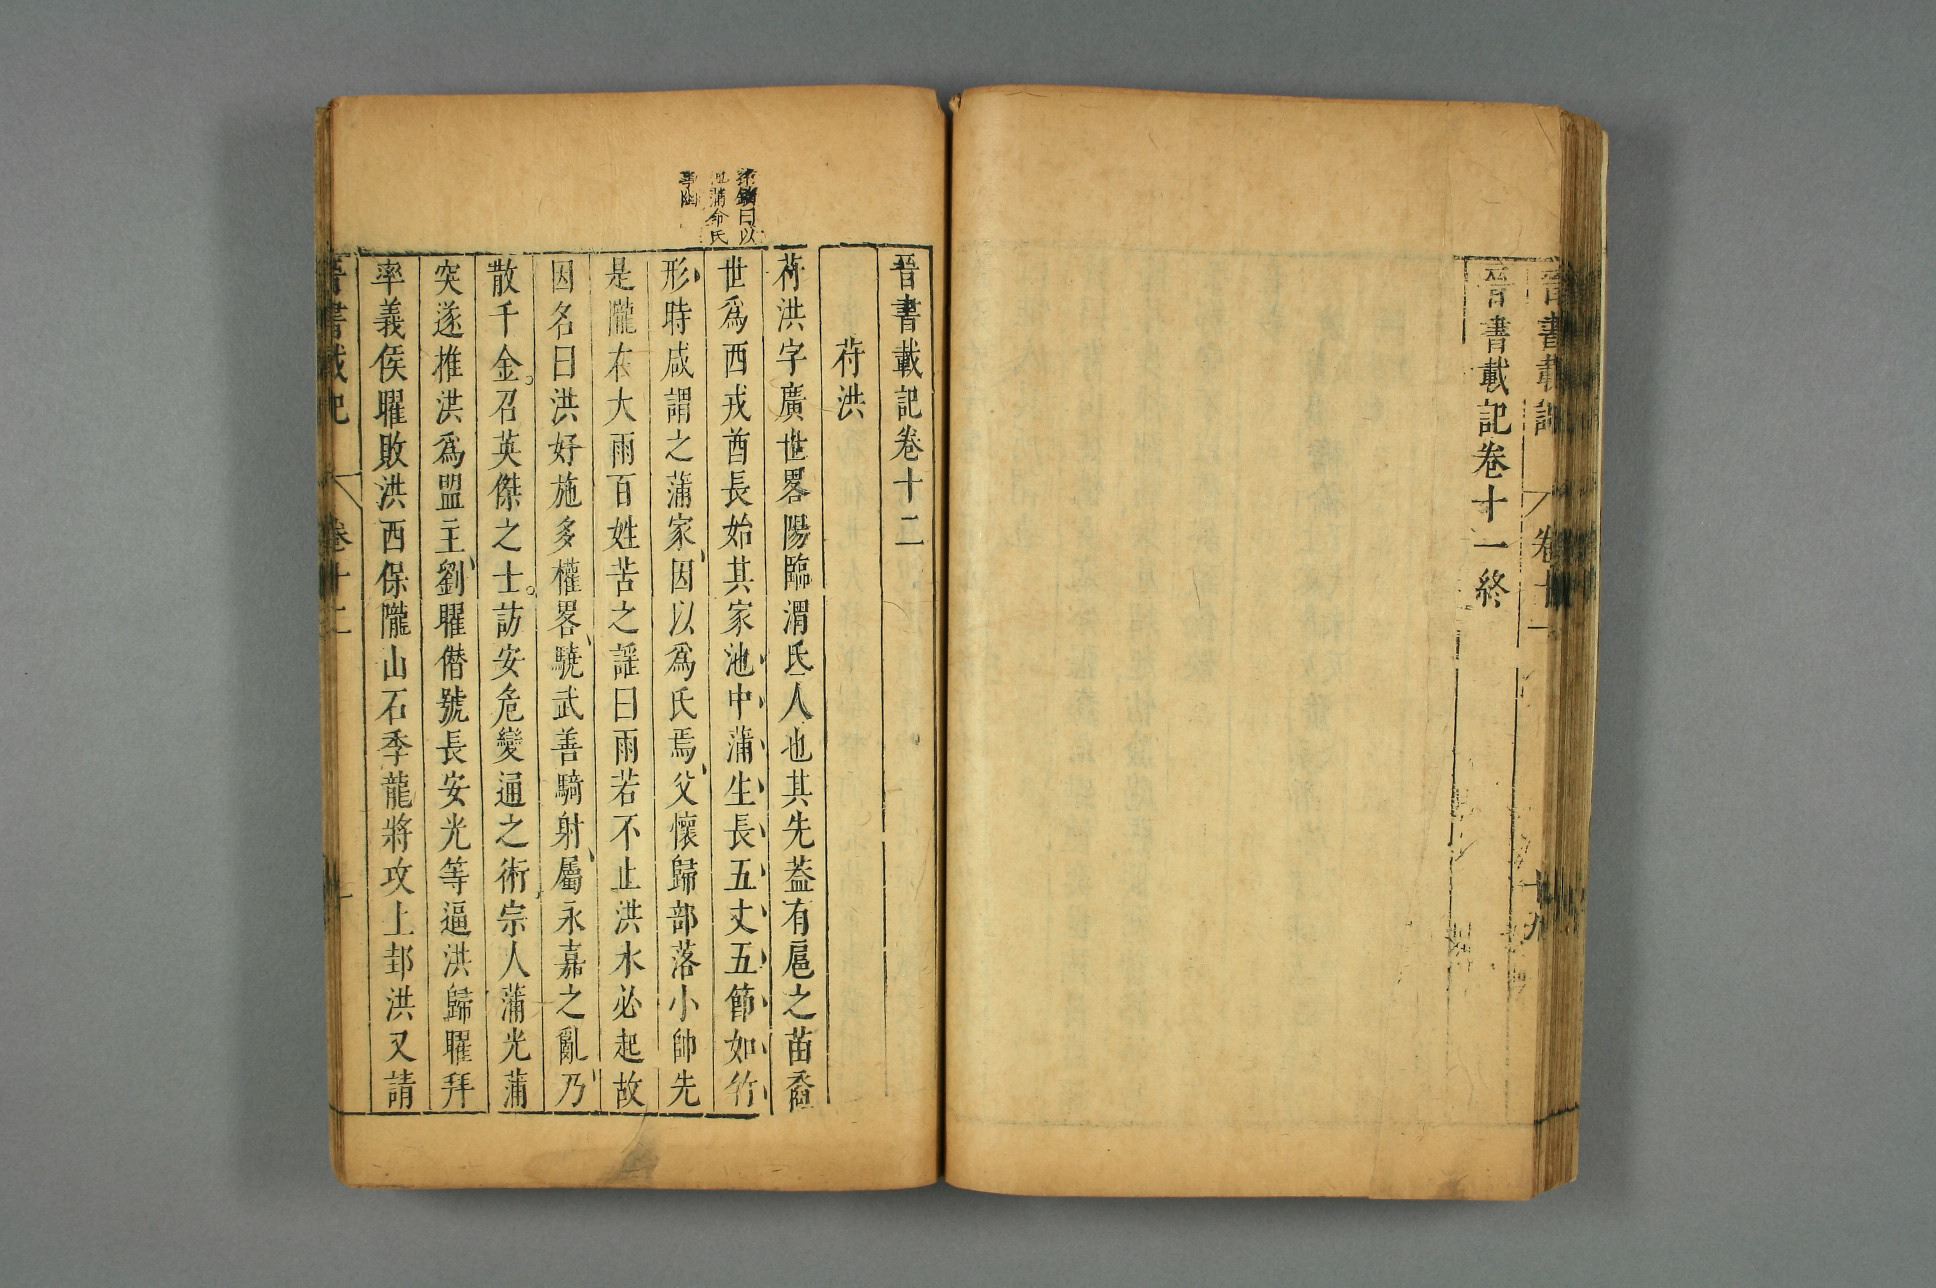 晉書載記卷十一終
晉書載記
卷十一
十九
晉書載記卷十二
苻洪
苻洪字廣世畧陽臨渭氐人也其先葢有扈之苗裔
世爲西戎酋長始其家池中蒲生長五丈五節如竹
形時咸謂之蒲家因以爲氏焉父懷歸部落小帥先
是隴右大雨百姓苦之謡曰雨若不止洪水必起故
因名曰洪好施多權畧驍武善騎射屬永嘉之亂乃
散千金召英傑之士訪安危變通之術宗人蒲光蒲
突遂推洪爲盟主劉曜僣號長安光等逼洪歸曜拜
率義侯曜敗洪西保隴山石季龍將攻上邽洪又請
晉書載記
卷十二
一
曰以
蒲命氏